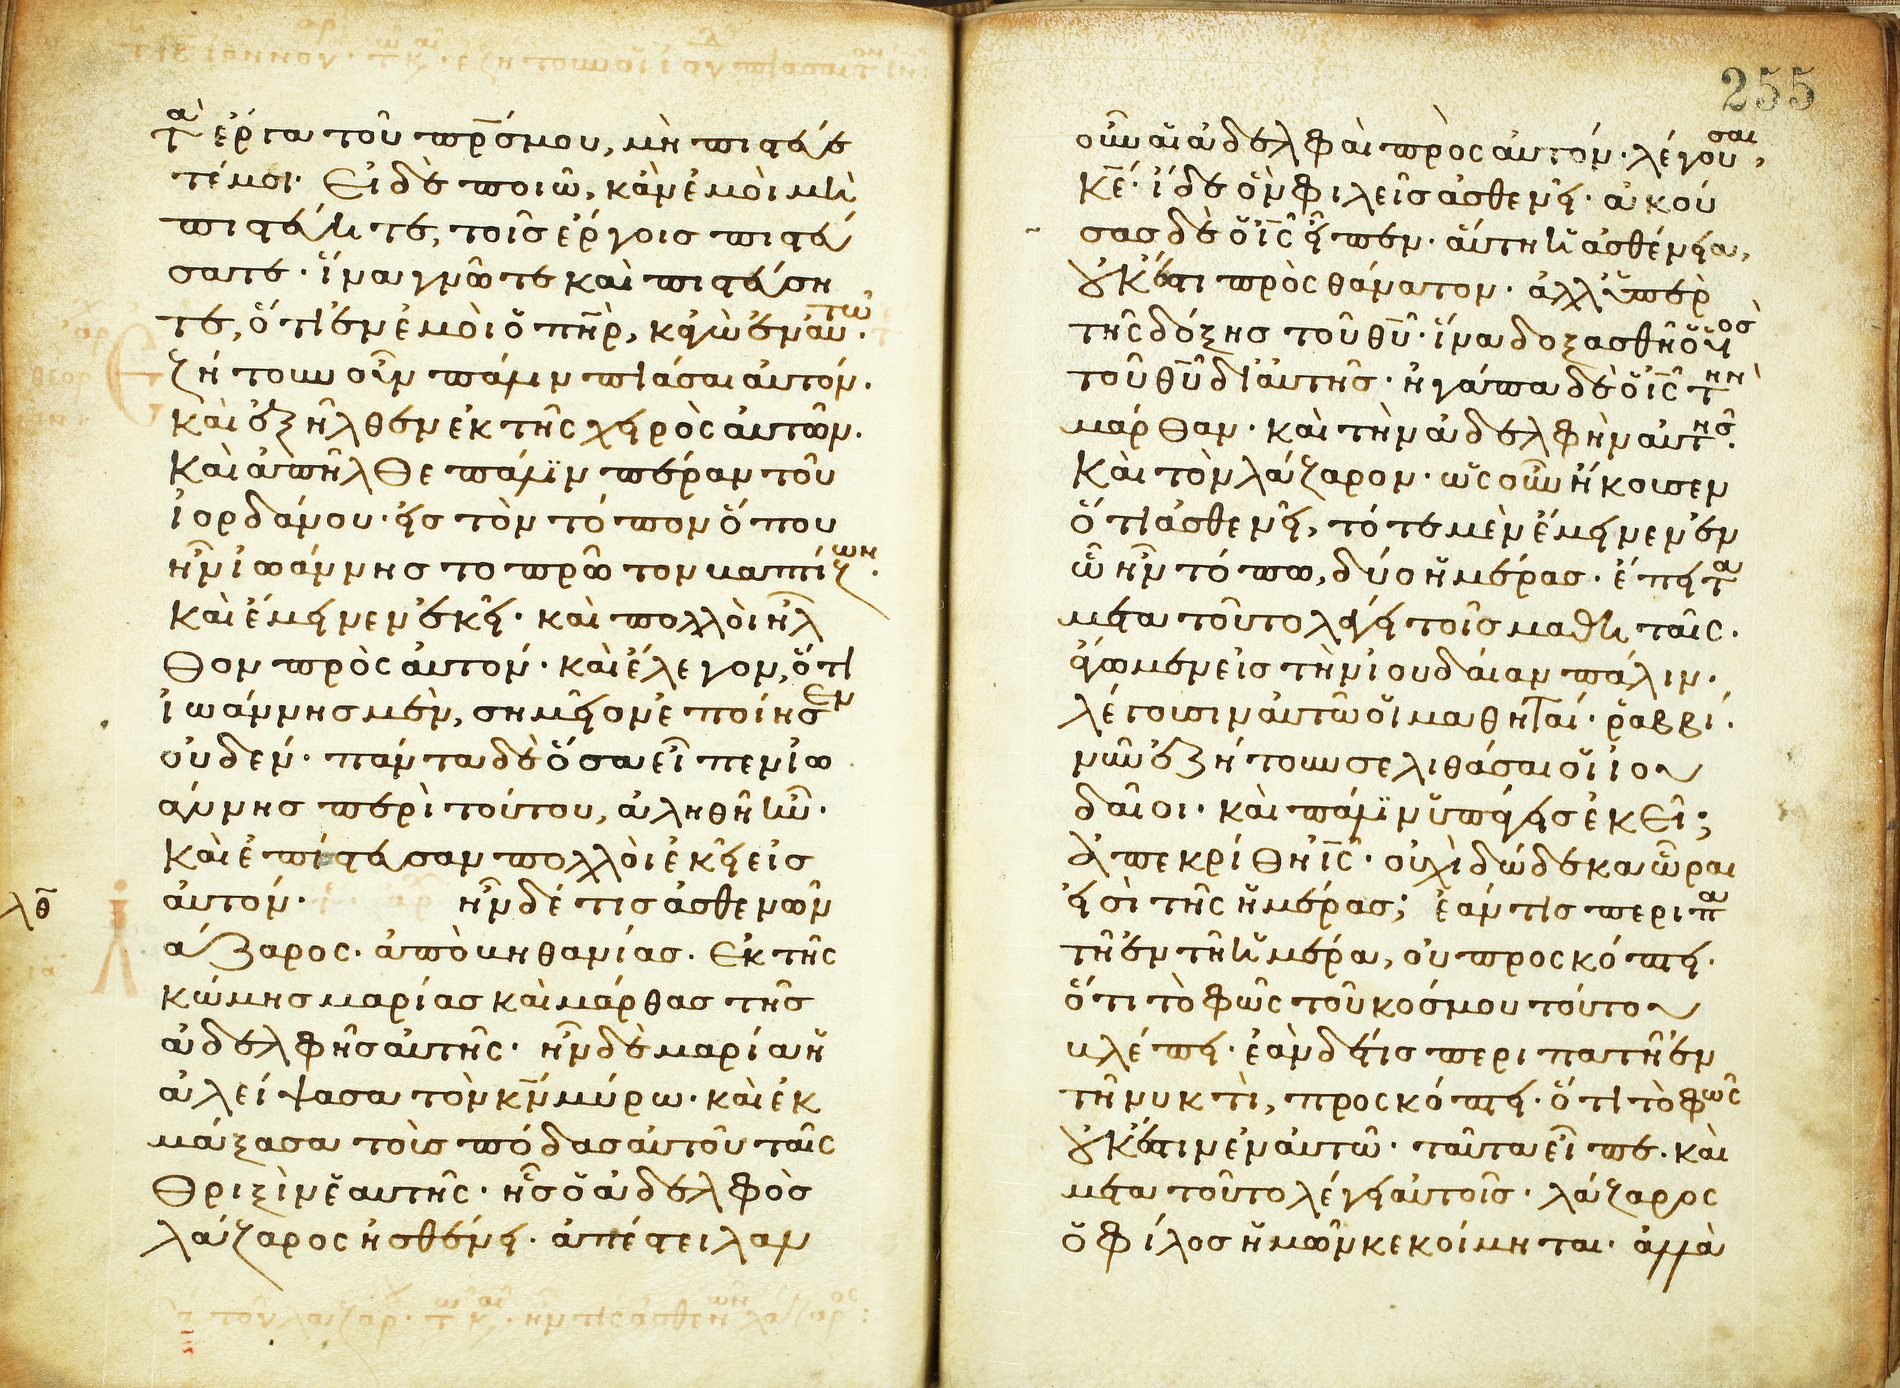 τὰ ἔργα τοῦ πρ̅σ μου, μὴ πιστεύε
τέ μοι· Εἰ δὲ ποιῶ, κἂν ἐμοὶ μὴ
πιστεύητε, τοῖς ἔργοις πιστεύ
σατε· ἵνα γνῶτε καὶ πιστεύση
τε, ὅτι ἐν ἐμοὶ ὁ πη̅ρ, κἀγὼ ἐν αὐτῶ·
ζήτουν οὖν πάλιν πιάσαι αὐτόν·
καὶ ἐξῆλθεν ἐκ τῆς χειρὸς αὐτῶν·
καὶ ἀπῆλθε πάλιν πέραν τοῦ
ἰορδάνου· εἰς τὸν τόπον ὅπου
ἦν ἰωάννης το πρῶτον βαπτίζων·
καὶ ἔμεινεν ἐκεῖ· καὶ πολλοὶ ἦλ
θον πρὸς αὐτόν· καὶ ἔλεγον, ὅτι
ἰωάννης μὲν, σημεῖον ἐποίησεν
οὐδέν· πάντα δὲ ὅσα εἶπεν ἰω
άννης περὶ τούτου, ἀληθῆ ἦν·
καὶ ἐπίστευσαν πολλοὶ ἐκεῖ εἰς
αὐτόν· ἦν δέ τις ἀσθενῶν
λθ̅
Λ
άζαρος· ἀπὸ βηθανίας· Εκ τῆς
κώμης μαρίας καὶ μάρθας τῆς
ἀδελφῆς αὐτῆς· ἦν δὲ μαρία ἡ
ἀλείψασα τὸν κ̅ν μύρω· καὶ ἐκ
μάξασα τοὺς πόδας αὐτοῦ ταῖς
θριξὶν ἑαυτῆς· ἧς ὁ ἀδελφὸς
λάζαρος ἠσθένει· ἀπέστειλαν
255
οὖν αἱ ἀδελφαὶ πρὸς αὐτόν· λέγουσαι,
κ̅ε· ἴδε ὃν φιλεῖς ἀσθενεῖ· ἀκού
σας δὲ ὁ ι̅ς εἶπεν· αὕτη ἡ ἀσθένεια,
οὐκ ἔστι πρὸς θάνατον· ἀλλ' ὑπὲρ
τῆς δόξης τοῦ θ̅υ· ἵνα δοξασθῆ ὁ υἱὸσ
τοῦ θ̅υ δι' αὐτῆς· ἠγάπα δὲ ὁ ι̅ς τὴν
μάρθαν· καὶ τὴν ἀδελφὴν αὐτῆς·
καὶ τὸν λάζαρον· ὡς οὖν ἤκουσεν
ὅτι ἀσθενεῖ, τότε μὲν ἔμεινεν ἐν
ᾧ ἦν τόπω, δύο ἡμέρας· ἔπειτα
μετα τοῦτο λέγει τοῖς μαθηταῖς·
ἄγωμεν εἰς τὴν ἰουδαίαν πάλιν·
λέγουσιν αὐτῶ οἱ μαθηταί· ῥαββί·
νῦν ἐζήτουν σε λιθάσαι οἱ ἰου
δαῖοι· καὶ πάλιν ὑπάγεις ἐκεῖ;
ἀπεκρίθη ι̅ς· οὐχὶ δώδεκα ὧραι
εἰσὶ τῆς ἡμέρας; ἐάν τις περιπα
τῆ ἐν τῆ ἡμέρα, οὐ προσκόπτει·
ὅτι τὸ φῶς τοῦ κόσμου τούτου
βλέπει· ἐὰν δέ τις περιπατῆ ἐν
τῆ νυκτὶ, προσκόπτει· ὅτι τὸ φῶς
οὐκ ἔστιν ἐν αὐτῶ· ταῦτα εἶπε· καὶ
μετα τοῦτο λέγει αὐτοῖς· λάζαρος
ὁ φίλος ἡμῶν κεκοίμηται· ἀλλὰ